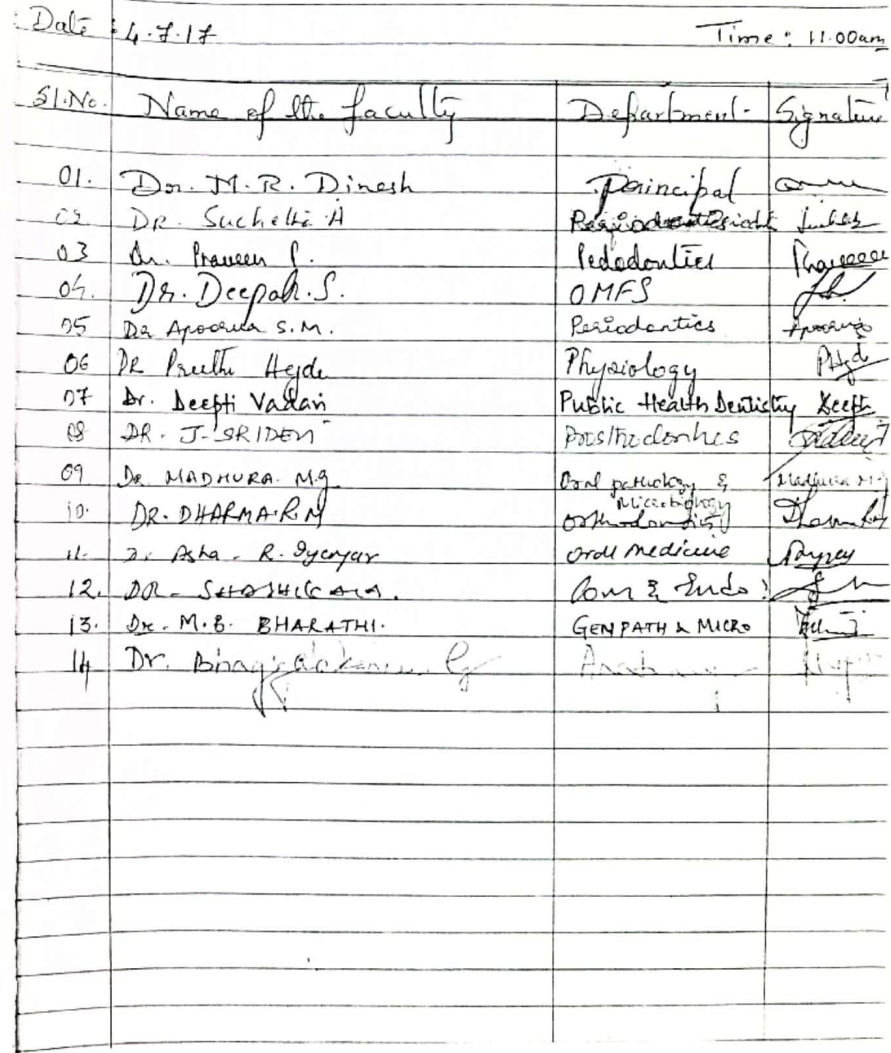 Date : 4.7.17 Time : 11.00am
Sl.No. Name of the faculty Department Signature
01. Dr. M.R. Dinesh Principal
02 DR. Suchetha A
03 Dr. Praveen P. Pedodontics Praveen
04. Dr. Deepak.S. OMFS
05 Dr Apoorva S.M. Periodontics Apoorva
06 DR Preethi Hegde Physiology PHgd
07 Dr. Deepti Vadavi Public Health Dentistry Deepti
08 DR. J-SRIDEVI Prosthodontics
09 Dr MADHURA. M.G Oral pathology & Microbiology Madhura M.G
10. DR. DHARMA.R.M Orthodontics
11. Dr Asha - R. Iyengar Oral Medicine
12. DR - SHASHIKALA. Cons & Endo
13. Dr. M.B. BHARATHI. GENPATH & MICRO
14 Dr. Anatomy